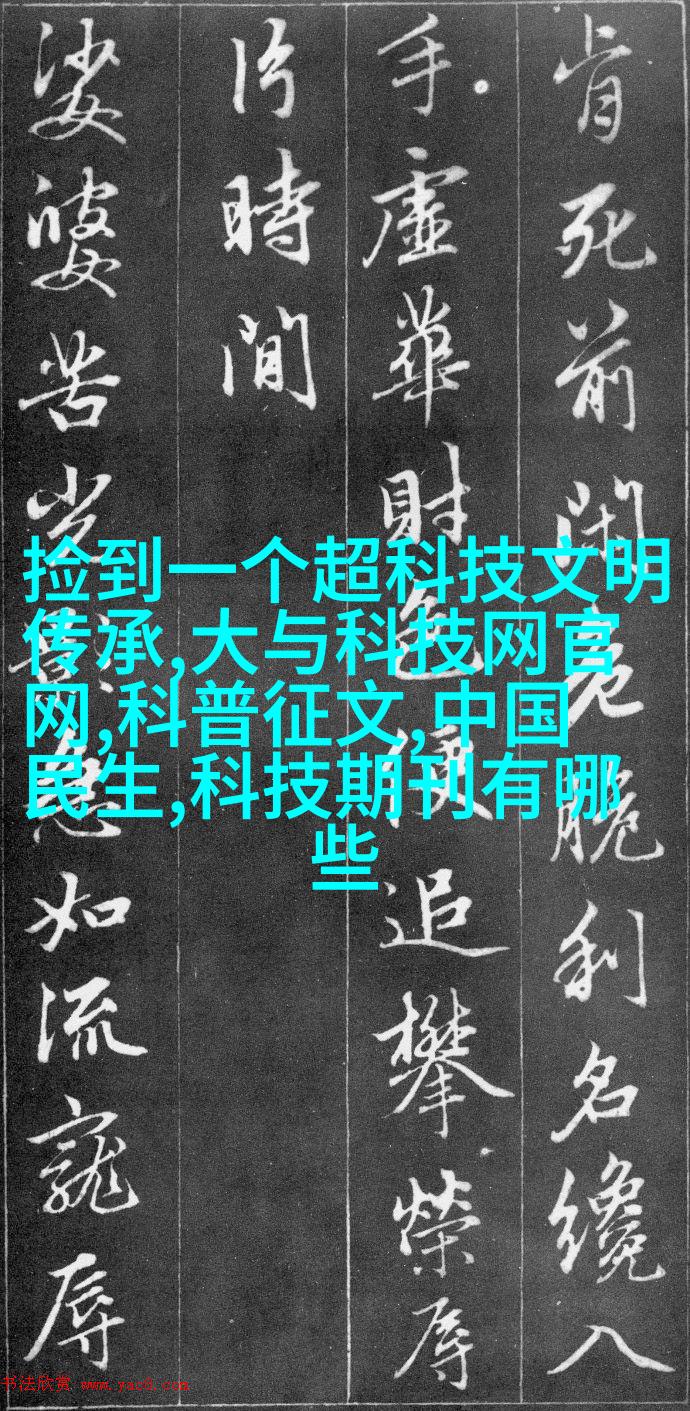 肯死前閑危脆利名纔入
手虛華財色便追攀榮辱
片時間
娑婆苦光影急如流寵辱
捡到一个超科技文明
传承,大与科技网官
网,科普征文,中国
民生,科技期刊有哪
些
书法欣赏 www.yac8.com